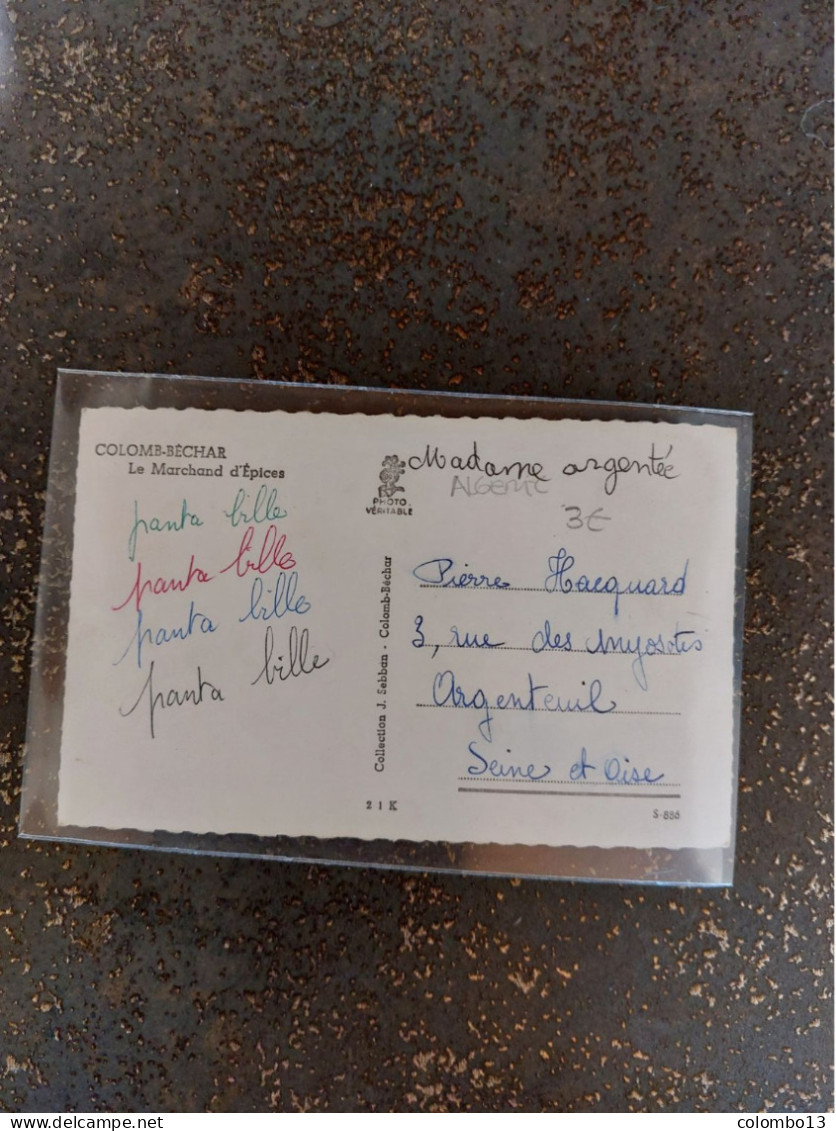 COLOMB-BÉCHAR
Le Marchand d'Épices
panta bille
panta bille
panta bille
panta bille
PHOTO
VÉRITABLE
Collection J. Sebban - Colomb-Béchar
21K
Madame argentée
ALGERIE
3€
Pierre Hacquard
3, rue des Myosotis
Argenteuil
Seine et Oise
S-886
colombo13